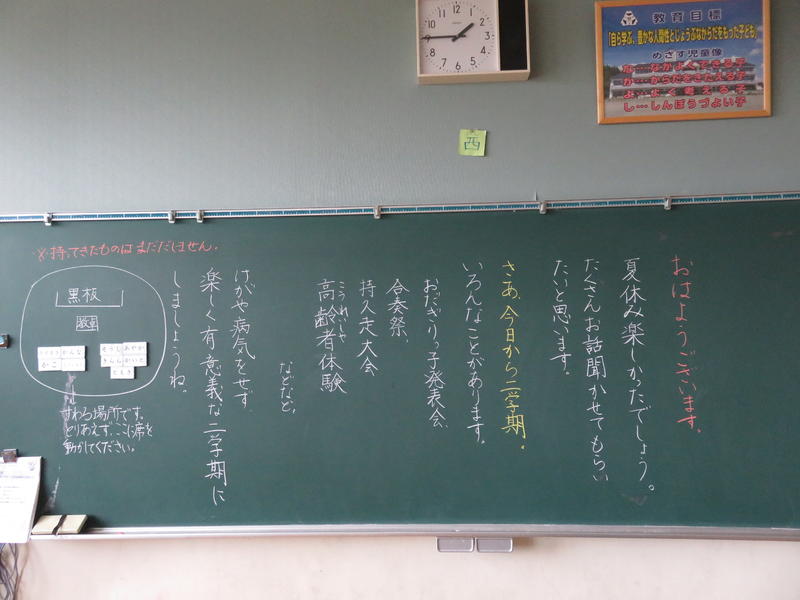 教育目標
「自ら学ぶ、豊かな人間性とじょうぶなからだをもった子ども」
めざす児童像
な…なかよくできる子
か…からだをきたえる子
よ…よく考える子
し…しんぼうづよい子
12
1
2
3
4
5
6
7
8
9
10
11
西
おはようございます。
夏休み楽しかったでしょう。
たくさんお話聞かせてもらい
たいと思います。
さあ、今日から二学期。
いろんなことがあります。
おだぎりっ子発表会、
合奏祭、
持久走大会
こうれいしゃ
高齢者体験
などなど。
けがや病気をせず
楽しく有意義な二学期に
しましょうね。
※持ってきたものはまだだしません。
黒板
教卓
かんな
かこ
そうし
あやか
きんら
かいと
ともき
すわる場所です。
とりあえず、ここに席を
動かしてください。